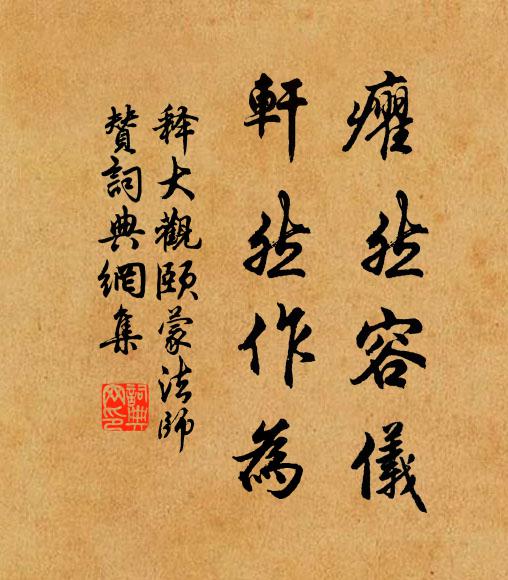 癯然容儀
軒然作為
释大觀頤蒙法師
赞詞典網集
詞典
网印